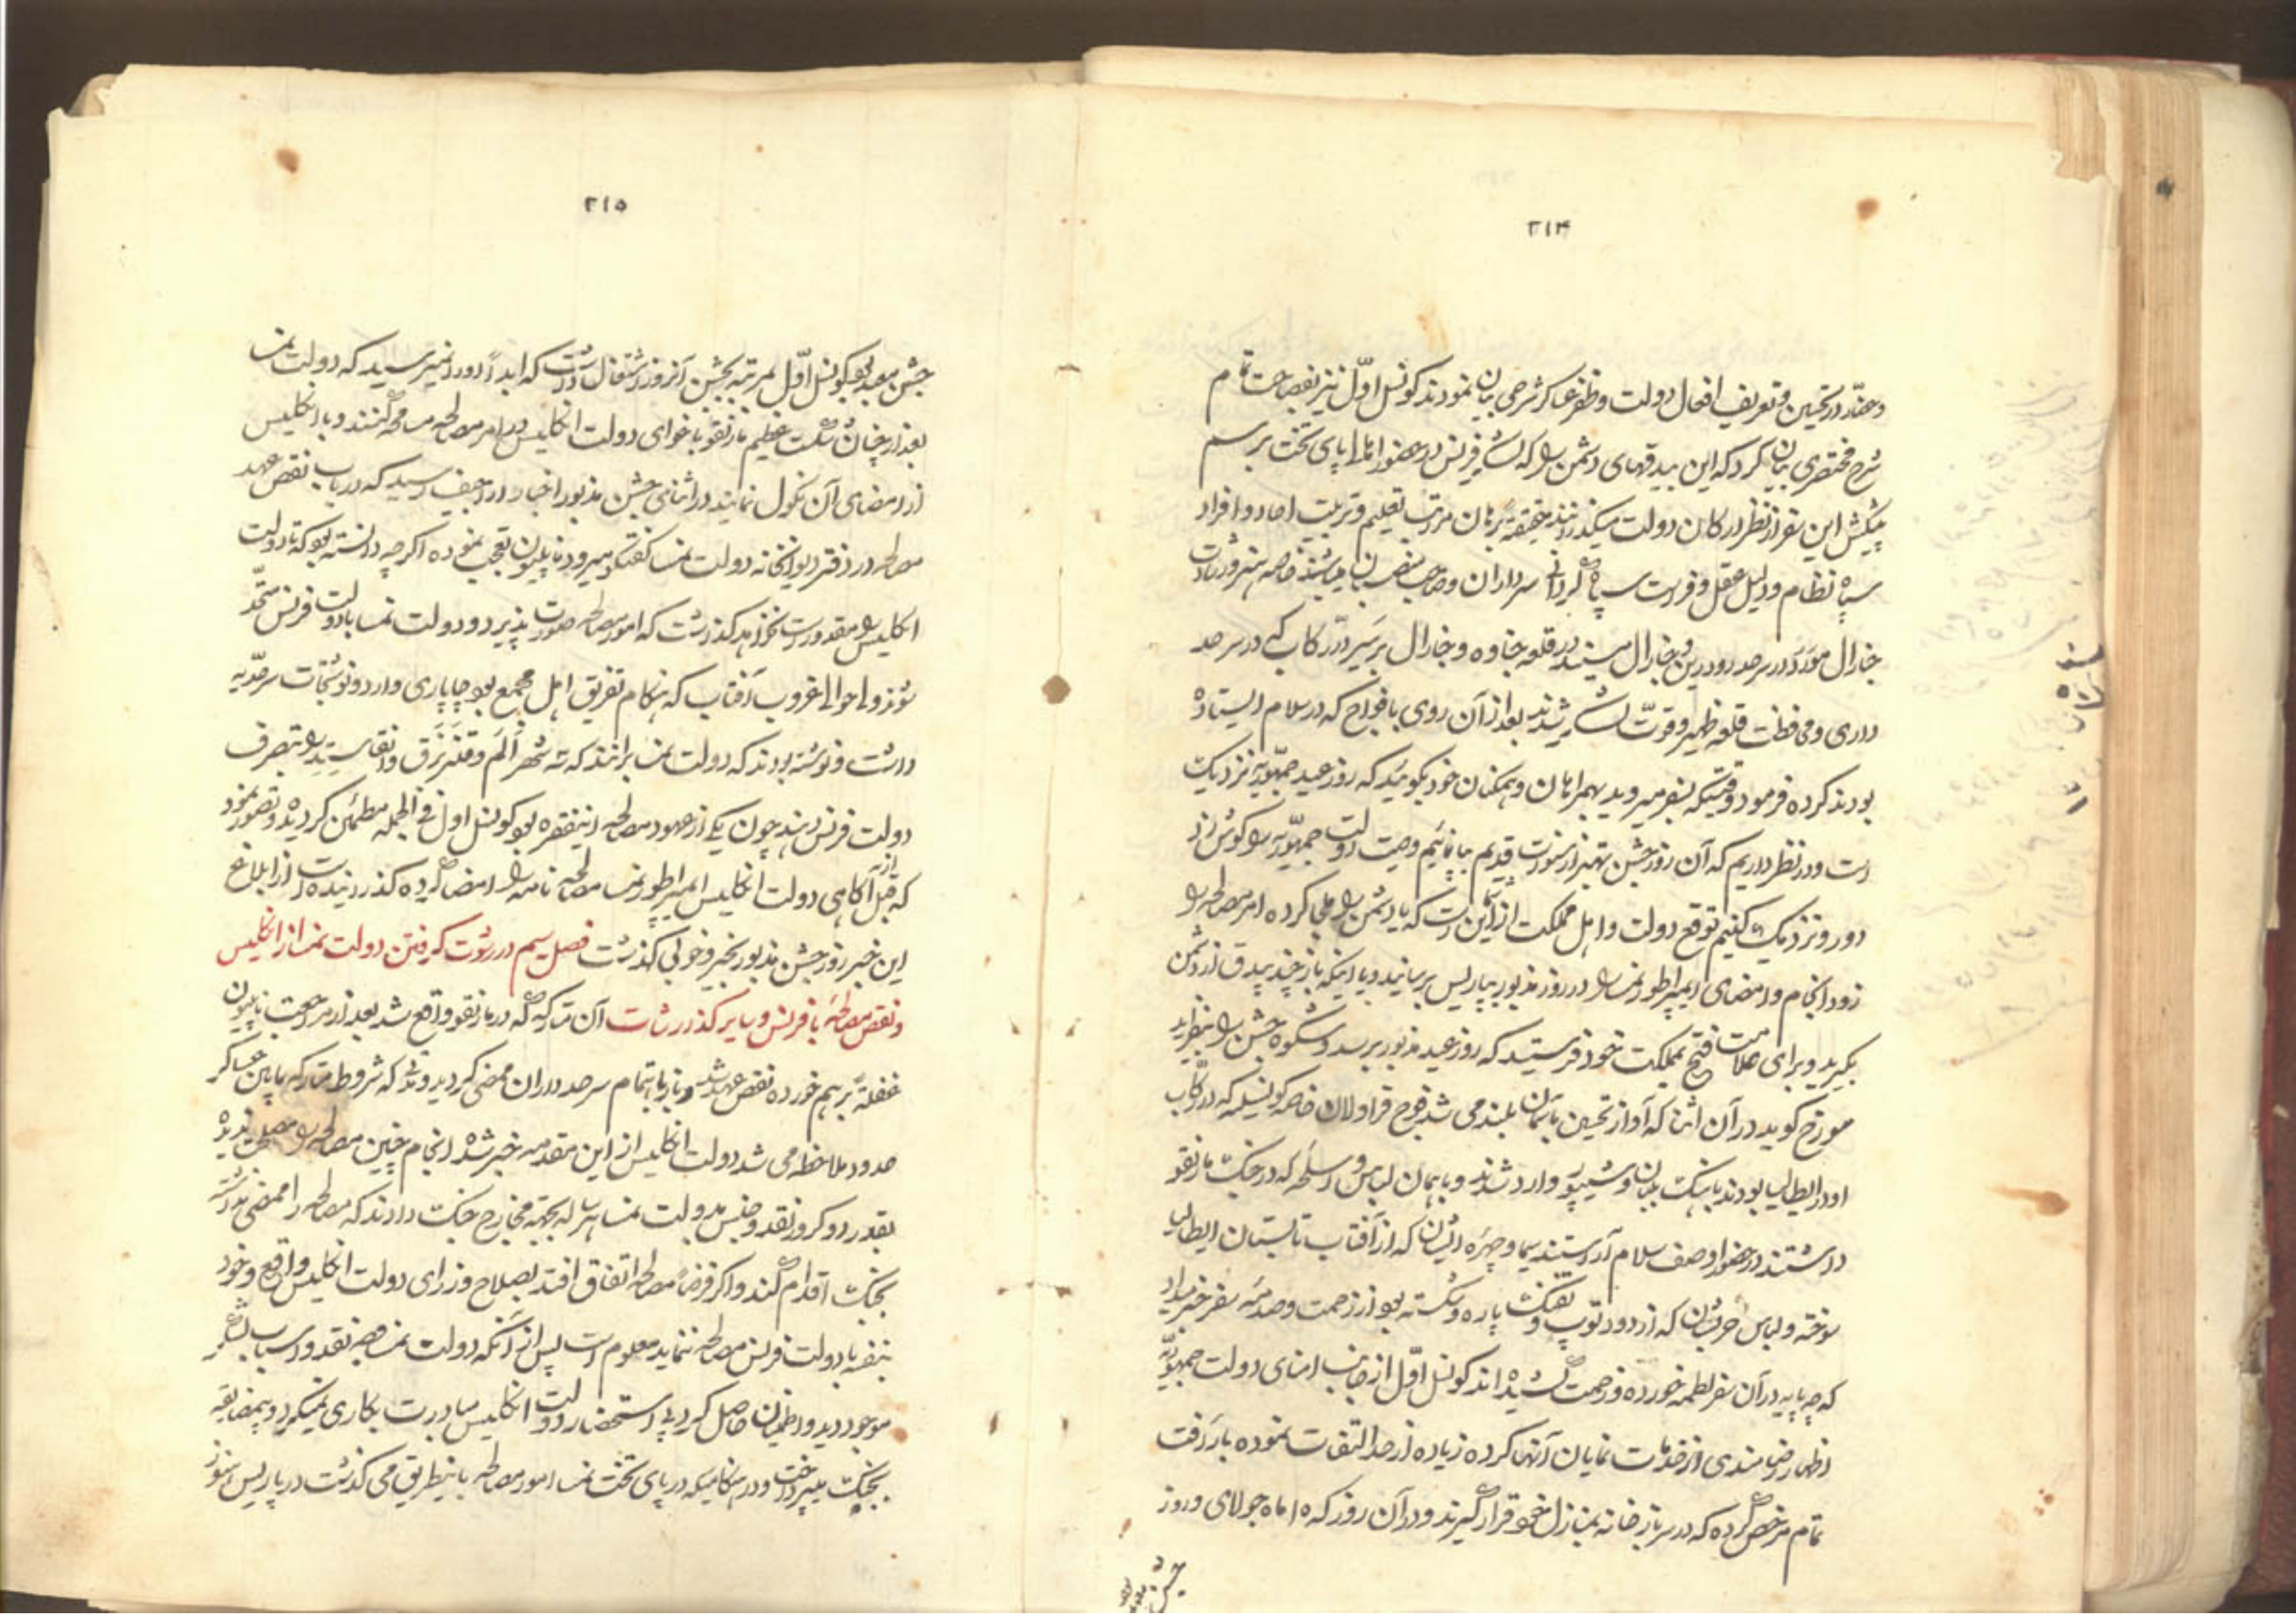 ۲۱۴
و عقار در تحسین و تعریف افعال دولت و ظفر عساکر شرحی بیان نمودند کونسل اوّل نیز بفصاحت تمام
شرح مختصری بیان کرد که این بیدقهای دشمن را که لشکر فرنس در حضور امنا پای تخت برسم
پیشکش این سفر از نظر ارکان دولت میگذرانند حقیقةً برهان مراتب تعلیم و تربیت احاد و افراد
سپاه نظام و دلیل عقل و فراست سپاه گردانی سرداران و صاحب منصبان میباشند خاصه هنر و رشادت
جنارال مورَو در سرحد رود رین و جنارال مسینه در قلعه جناوه و جنارال برسیر در رکابی که در سرحد
داری و محافظت قلعه ظهیر و قوّت لشکر شدند بعد از آن روی بافواج که در سلام ایستاده
بودند کرده فرمود وقتیکه بسفر میروید بهمراهان و همگنان خود بگوئید که روز عید جمهوریه نزدیک
است و در نظر داریم که آن روز جشن بهتر از سنوات قدیم بنمائیم وصیت دولت جمهوریه را گوش زد
دور و نزدیک کنیم توقع دولت و اهل مملکت از ایشان این است که یا دشمن را ملجا کرده امر مصالحه را
زود انجام و امضای ایمپراطور نمسا را در روز مذبور بپاریس برسانید و یا اینکه باز چند بیدق از دشمن
بگیرید و برای علامت فتح بمملکت خود فرستید که روز عید مذبور برسد و شکوه جشن را بیفزاید
مورخ گوید در آن اثنا که آواز تحسین بآسمان بلند می شد فوج قراولان خاصه کونسلیه که در رکاب
او در ایطالیا بودند بآهنگ بلبان و شیپور وارد شدند و با همان لباس و اسلحه که در جنگ مارنقو
داشتند در حضور او صف سلام آراستند سیما و چهره ایشان که از آفتاب تابستان ایطالیا
سوخته و لباس حرب شان که از دود توپ و تفنگ پاره و شکسته بود از زحمت و صدمه سفر خبر میداد
که چه پایه در آن سفر لطمه خورده و زحمت کشیده اند کونسل اوّل از جانب امنای دولت جمهوریّه
اظهار رضامندی از خدمات نمایان آنها کرده زیاده از حد التفات نموده با رأفت
تمام مرخص کرده که در سربازخانه بمنازل خود قرار گیرند و در آن روز که ۱۵ ماه جولای و روز
جشن
۲۱۵
جشن معهود بود کونسل اوّل بمرتبه بجشن آنروز اشتغال داشت که ابداً در نمیرسید که دولت نمسا
بعد از چنان شکست عظیم مارنقو باغوای دولت انکلیس در امر مصالحه مسامحه کنند و با انکلیس
از امضای آن نکول نمایند در اثنای جشن مذبور اخبار اراجیف رسید که در باب نقص عهد
مصالحه در دفتر دیوانخانه دولت نمسا گفتگو میرود ناپلیون تعجب نموده اگرچه دانسته بود که تا دولت
انکلیس را مقدور است نخواهد گذاشت که امور مصالحه صورت پذیرد و دولت نمسا با دولت فرنس متّحد
شود و احوال غروب آفتاب که هنکام تفریق اهل مجمع بود چاپاری وارد و نوشتجات سرحدّیه
داشت و نوشته بودند که دولت نمسا برانند که سه شهر اُلم و فلنزبرق و انقاستید را بتصرف
دولت فرنس دهند چون یکی از عهود مصالحه اینفقره بود کونسل اول فی الجمله مطمئن گردیده و تصور نمود
که قبل از آگاهی دولت انکلیس ایمپراطور نمسا مصالحه نامه را امضا کرده گذرانیده است از ابلاغ
این خبر روز جشن مذبور بخیر و خوبی گذشت فصل سیم در رشوت گرفتن دولت نمسا از انکلیس
و نقص مصالحه با فرنس و سایر گذارشات آن متارکه که در مارنقو واقع شد بعد از مراجعت ناپلیون
غفلةً برهم خورده نقص عهد شد و باز باهتمام سرحدداران ممضی گردید و شد که شروط متارکه مابین عساکر
حدود ملاحظه می شد دولت انکلیس از این مقدمه خبر شده انجام چنین مصالحه را مصلحت ندیده
بقدر دو کرور نقد و جنس بدولت نمسا هر ساله بجهة مخارج جنک دادند که مصالحه را ممضی نداشته
بجنک اقدام کنند و اگر فرضاً مصالحه اتفاق افتد بصلاح وزرای دولت انکلیس واقع و خود
بنفسه با دولت فرنس مصالحه ننماید معلوم است پس از آنکه دولت نمسا همه نقد و اسباب لشکر
موجود دید و اطمینان حاصل کرد بی استحضار دولت انکلیس مبادرت بکاری نمیکرد و بمضایقه
بجنک میپرداخت و در هنکامیکه در پای تخت نمسا امور مصالحه باینطریق می گذشت در پاریس هنوز